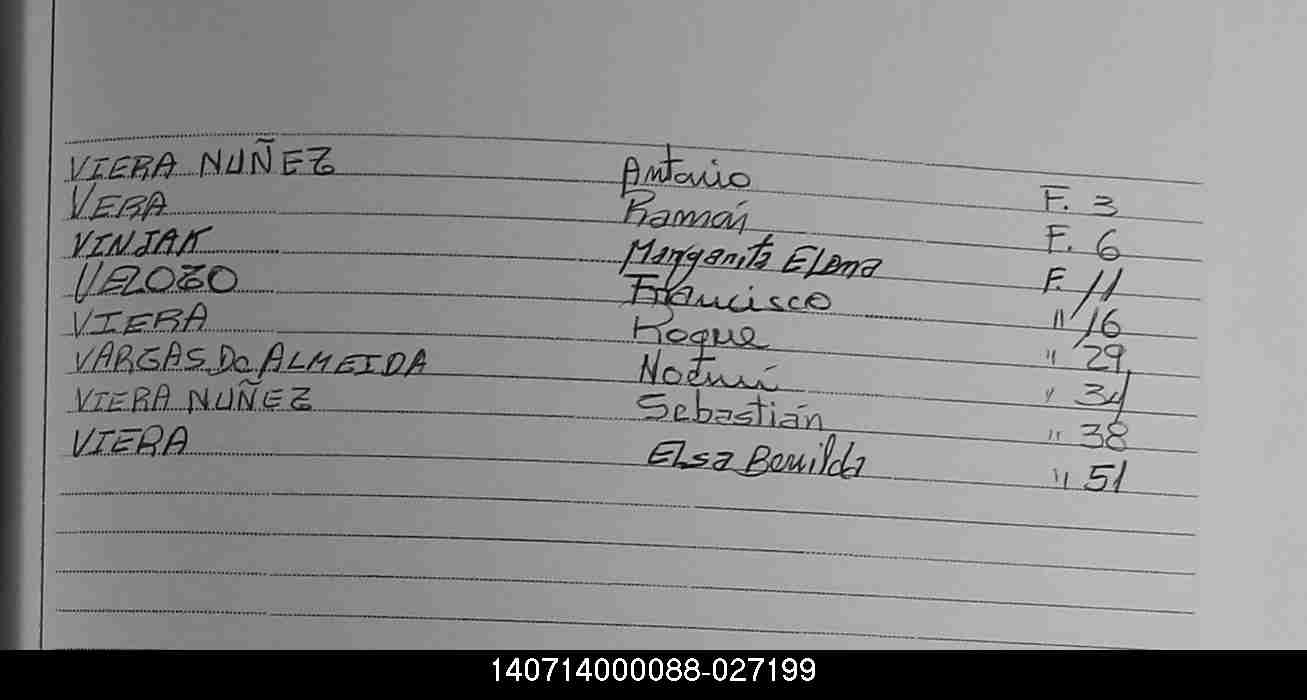 VIERA NUÑEZ Antonio F. 3
VERA Ramón F. 6
VINJAK Margarita Elena F. 11
VELOZO Francisco " 16
VIERA Roque " 29
VARGAS Do ALMEIDA Noemí " 34
VIERA NUÑEZ Sebastián " 38
VIERA Elsa Benilda " 51
140714000088-027199